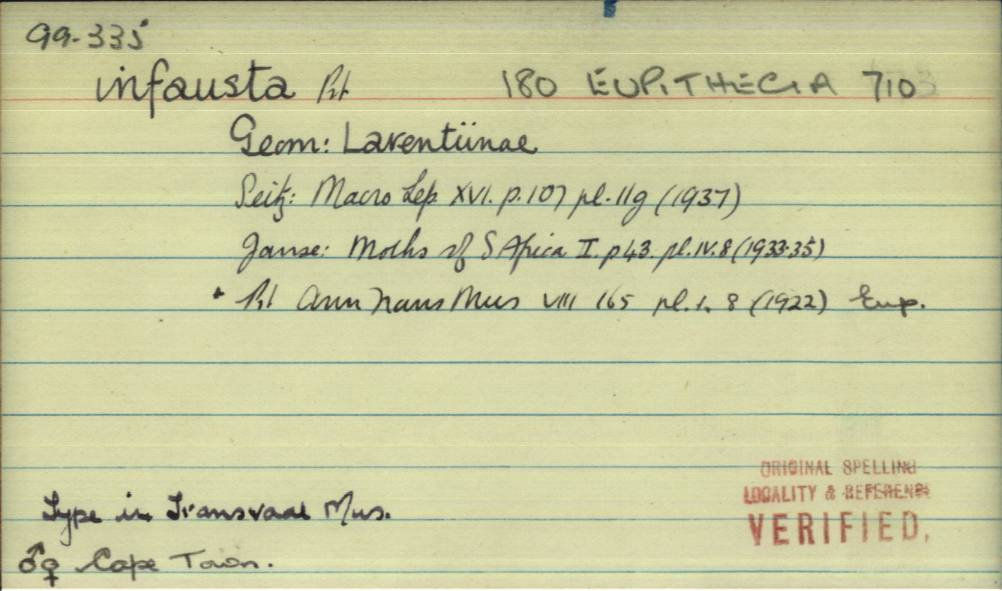 99.335
infausta Prt 180 EUPITHECIA 710
Geom: Larentiinae
Seitz: Macro Lep. XVI. p.107 pl.11g (1937)
Janse: Moths of S Africa II. p43. pl.IV.8 (1933-35)
* Prt Ann Trans Mus VIII 165 pl.1. 8 (1922) Eup.
ORIGINAL SPELLING
LOCALITY & REFERENCE
VERIFIED.
Type in Transvaal Mus.
♂♀ Cape Town.